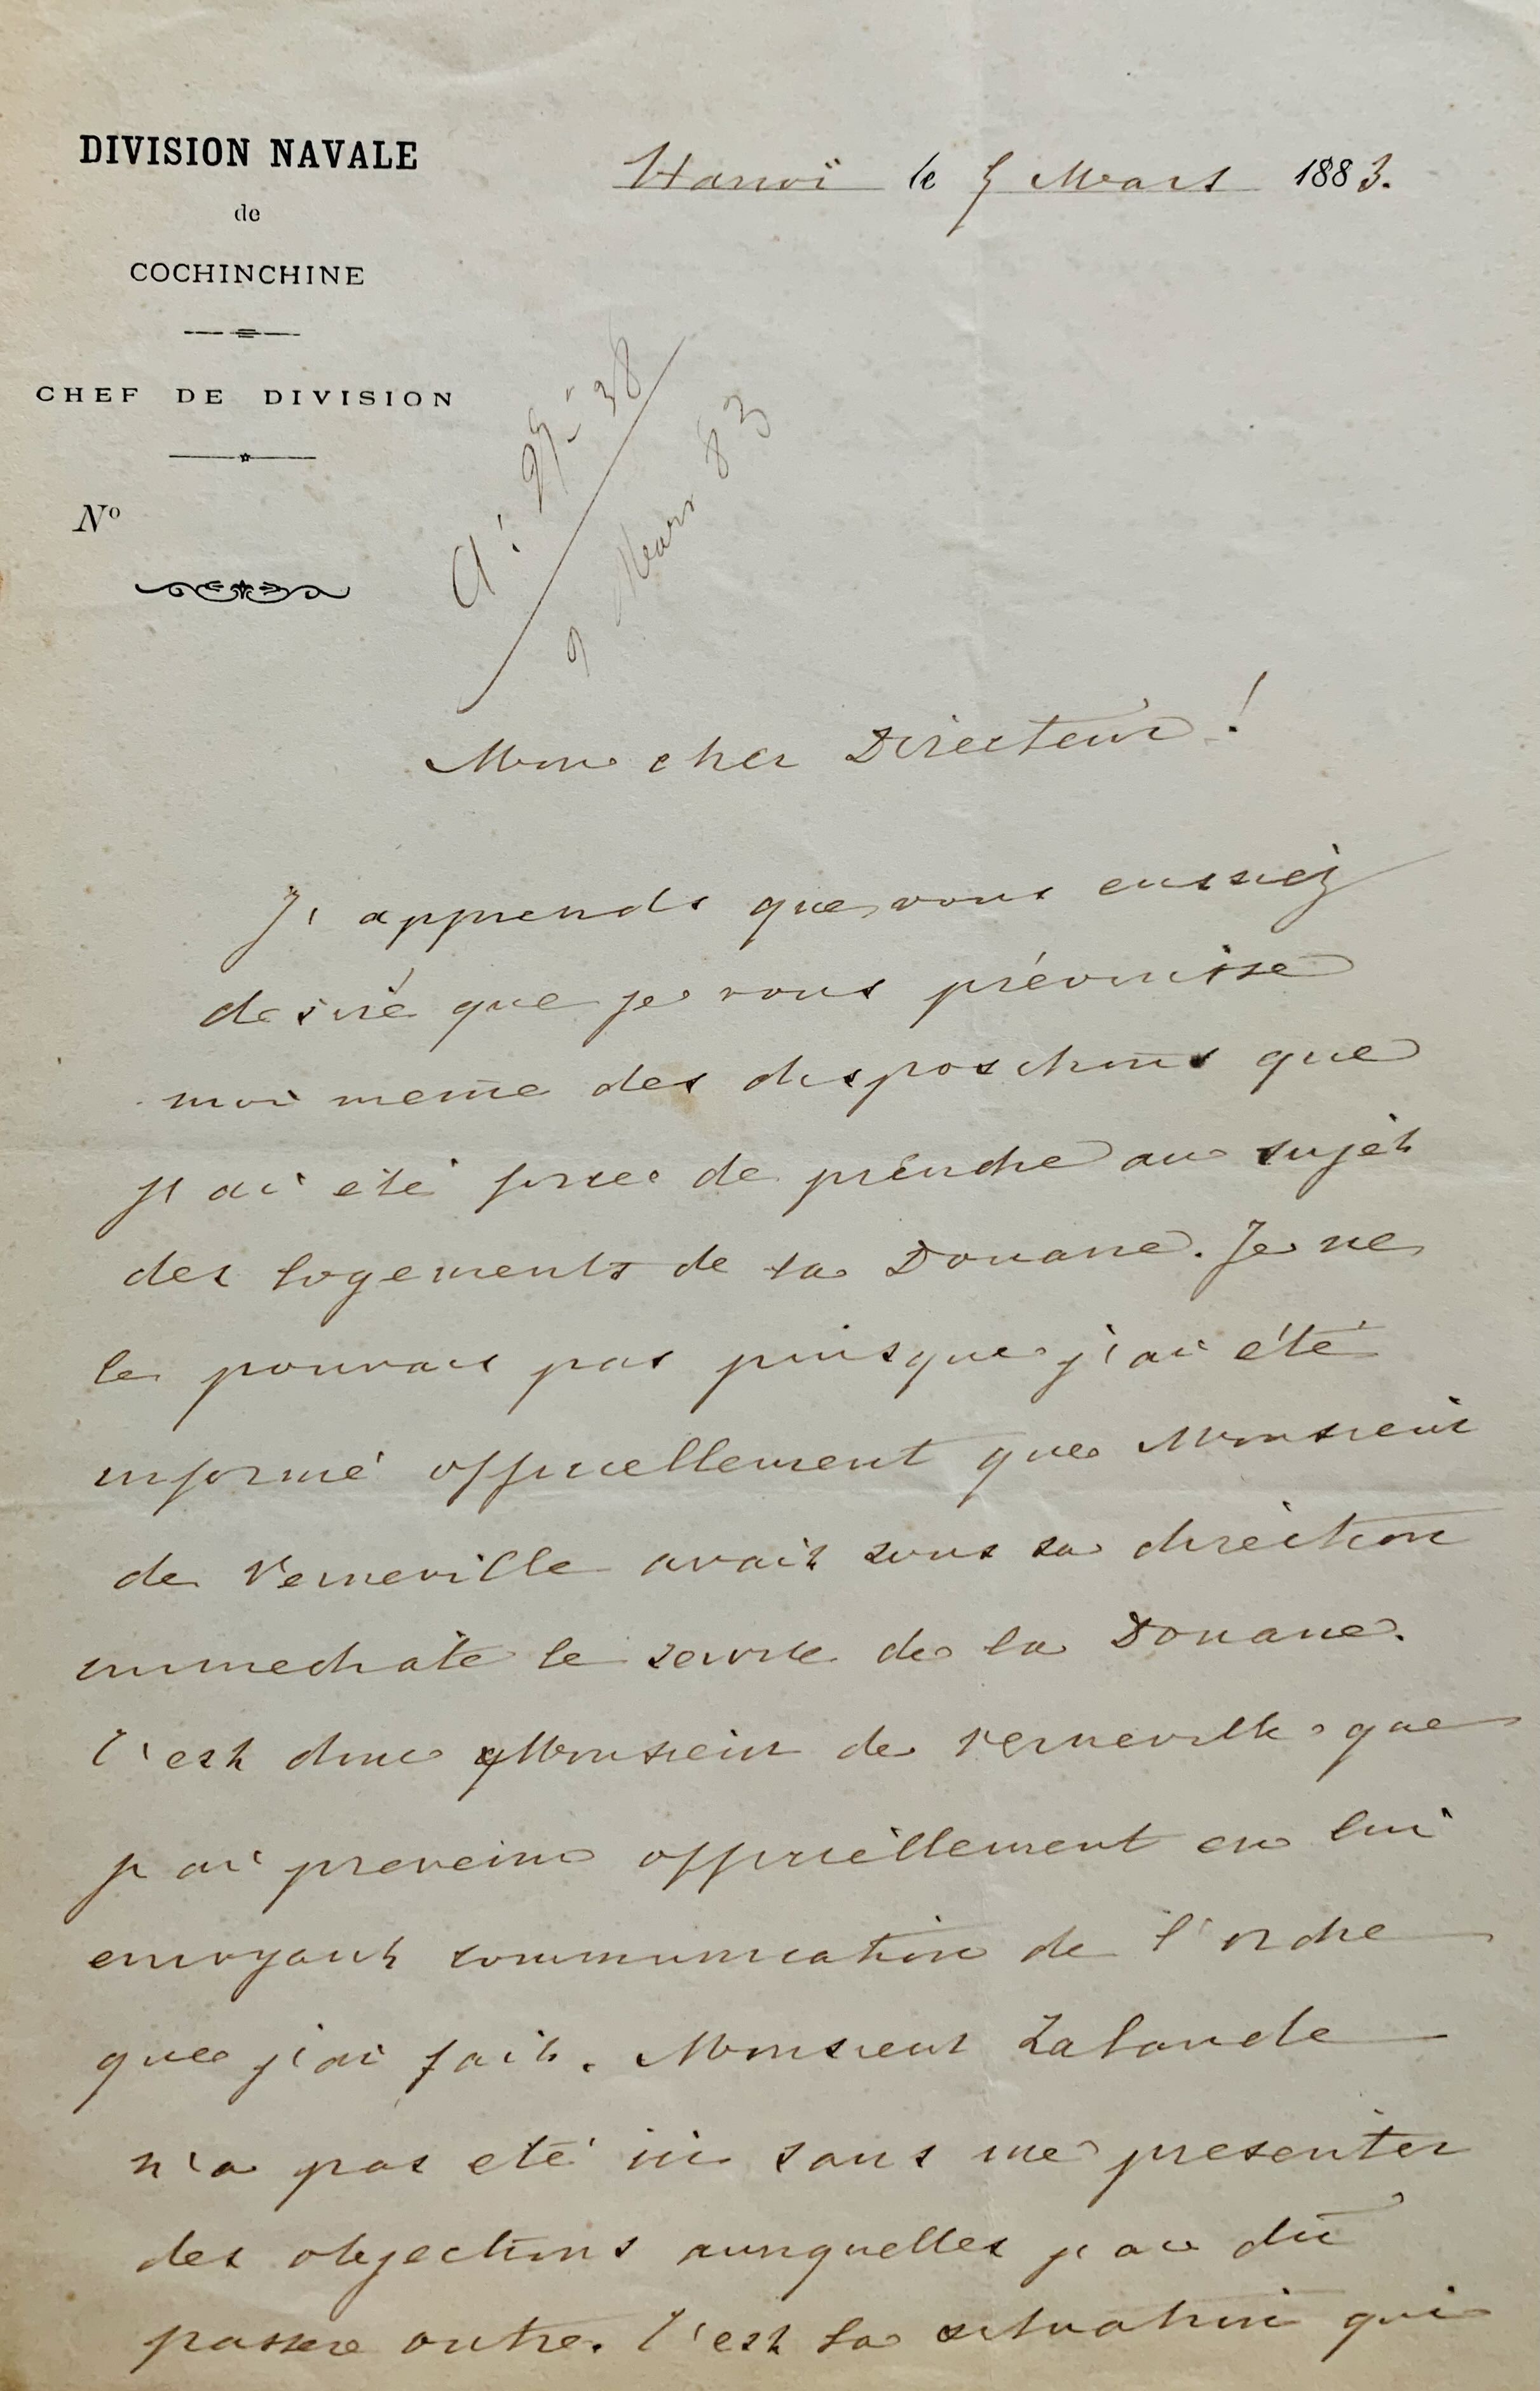 DIVISION NAVALE
de
COCHINCHINE
CHEF DE DIVISION
Nº
Hanoï le 5 Mars 1883.
38
9 Mars 83
Mon cher Directeur !
J'apprends que vous eussiez
desiré que je vous prévinsse
moi meme des dispositions que
j'ai été forcé de prendre au sujet
des logements de la Douane. Je ne
le pouvais pas puisque j'ai été
informé officiellement que Monsieur
de Verneville avait sous sa direction
immediate le service de la Douane.
C'est donc Monsieur de Verneville que
j'ai prevenu officiellement en lui
envoyant communication de l'ordre
que j'ai fait. Monsieur Lalande
n'a pas eté ici sans me presenter
des objections auxquelles j'ai dû
passer outre. C'est la situation qui